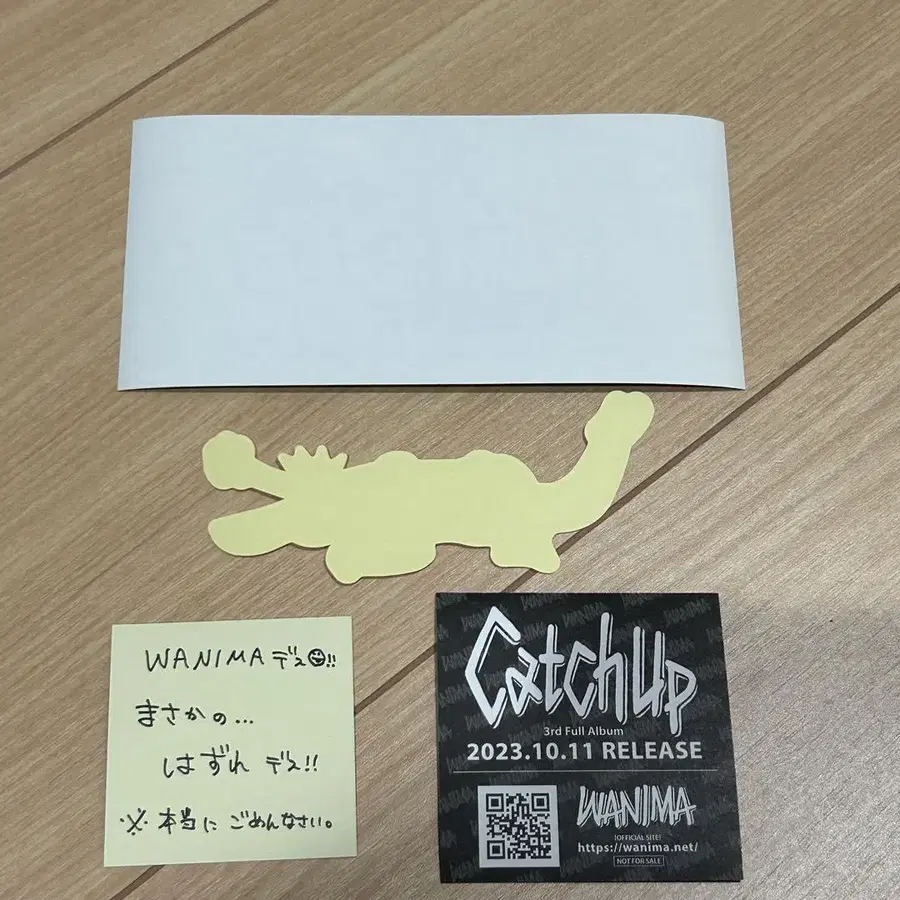 WANIMA デス!!
まさかの...
はずれ デス!!
※ 本当に ごめんなさい。
Catch Up
3rd Full Album
2023.10.11 RELEASE
WANIMA
[OFFICIAL SITE]
https://wanima.net/
NOT FOR SALE